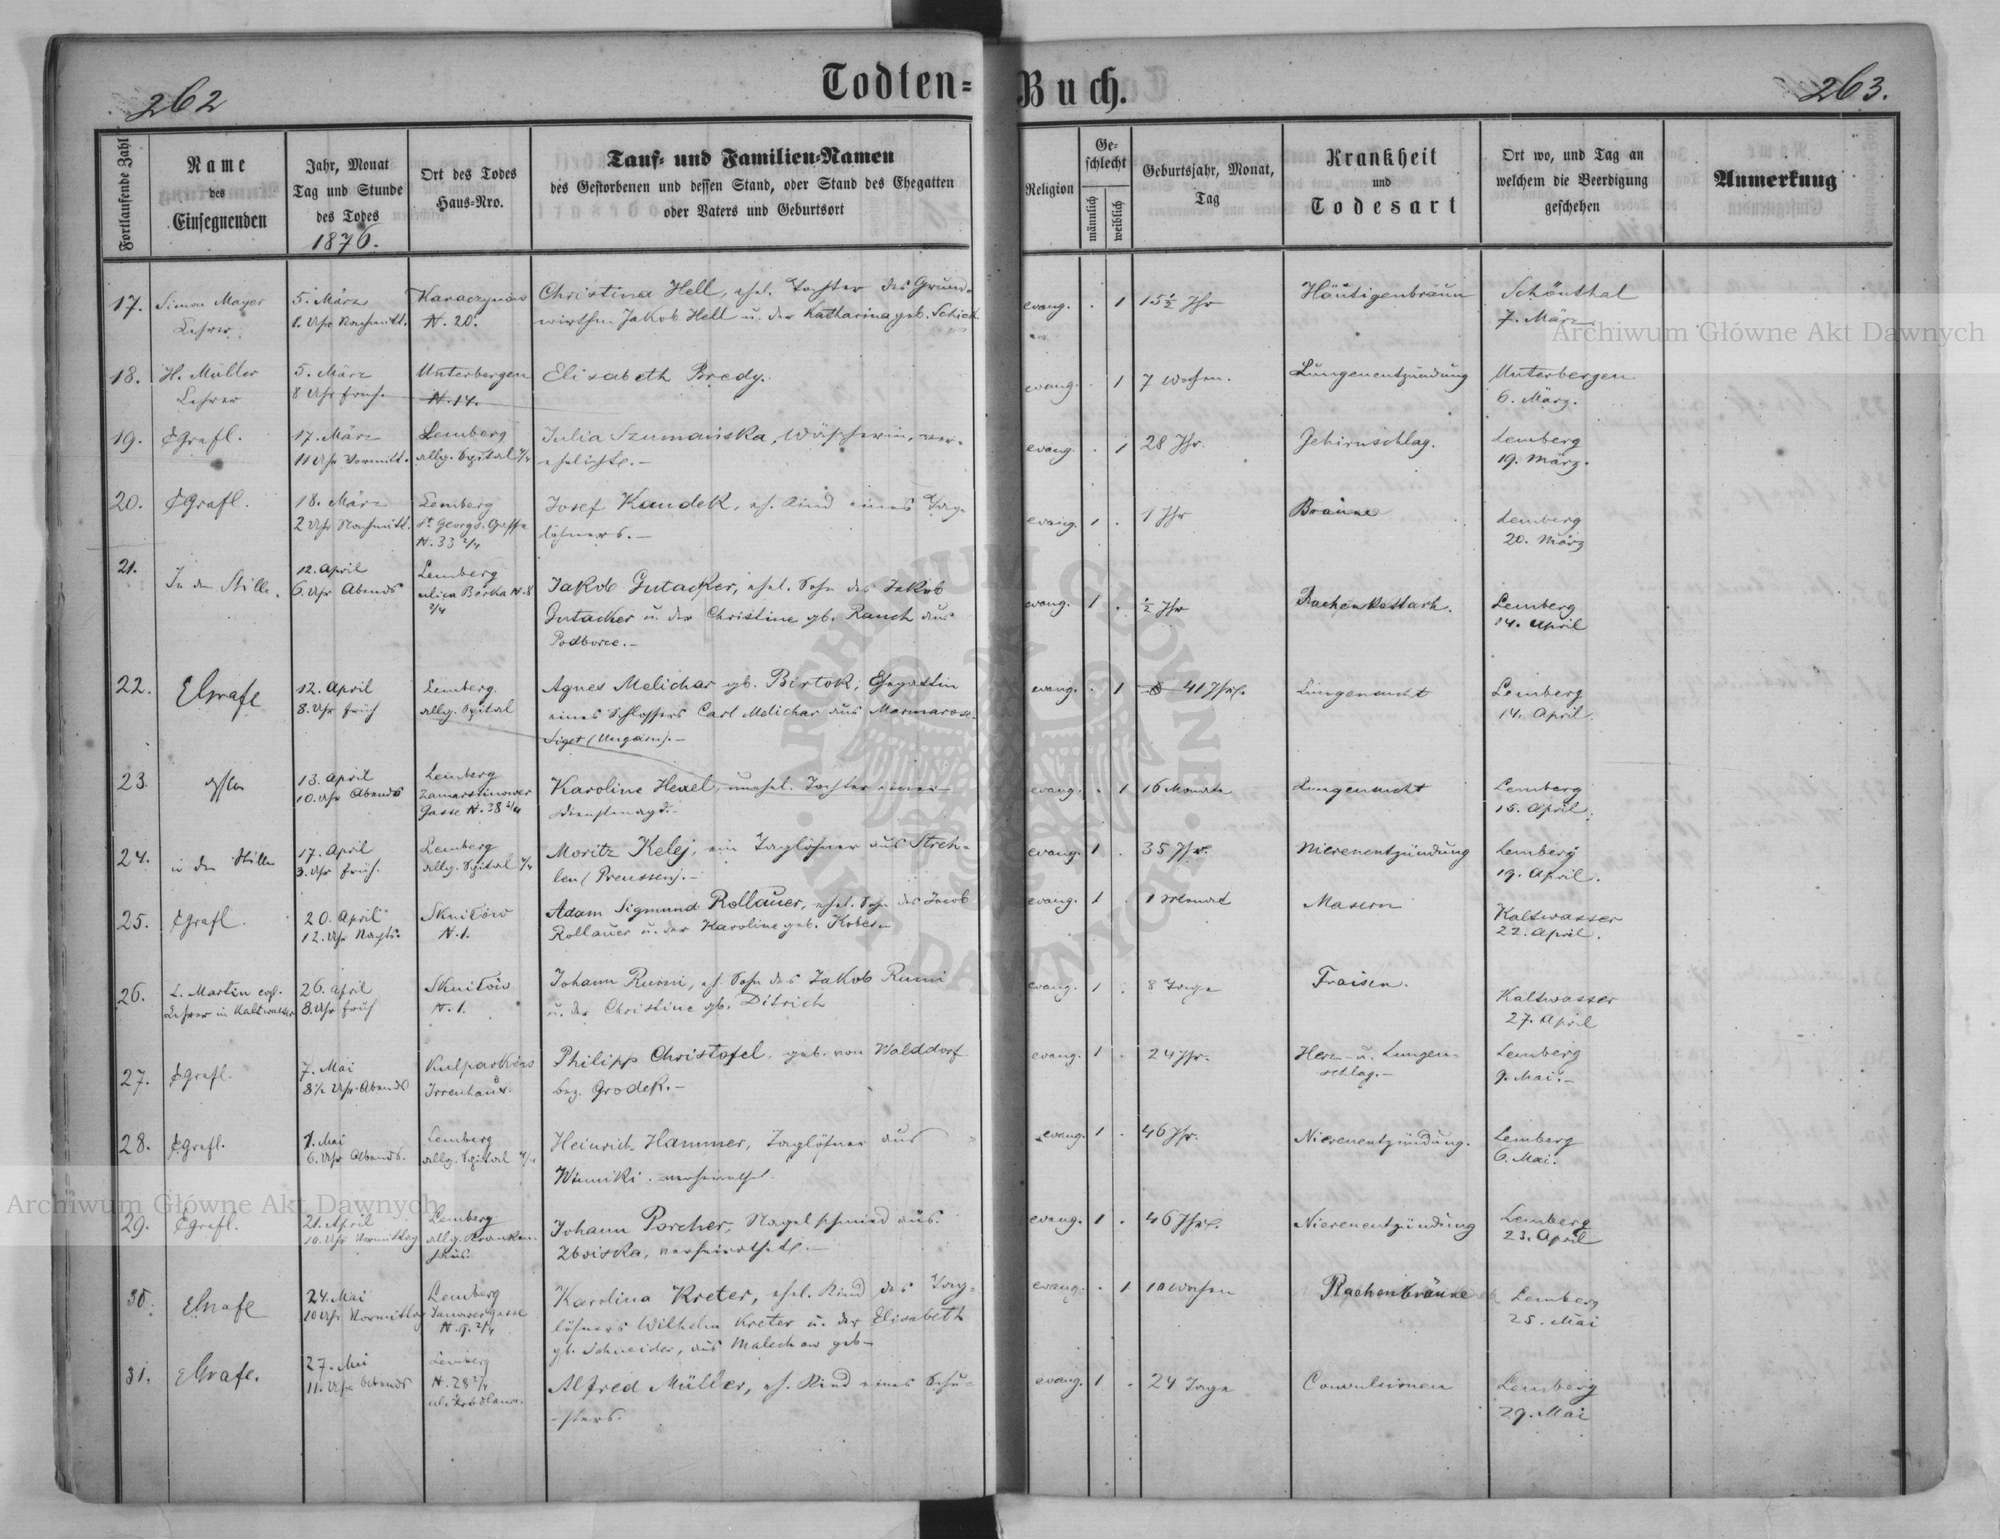 262
Todten-
Buch.
263.
Fortlaufende Zahl
Name
des
Einsegnenden
Jahr, Monat
Tag und Stunde
des Todes
1876.
Ort des Todes
Haus-Nro.
Tauf- und Familien-Namen
des Gestorbenen und dessen Stand, oder Stand des Ehegatten
oder Vaters und Geburtsort
Religion
Ge-
schlecht
männlich
weiblich
Geburtsjahr, Monat,
Tag
Krankheit
und
Todesart
Ort wo, und Tag an
welchem die Beerdigung
geschehen
Anmerkung
17.
Simon Mayer
Lehrer
5. März
1. Uhr Nachmitt.
Karaczynów
N. 20.
Christina Hell, ehel. Tochter des Grund-
wirthen Jakob Hell u. der Katharina geb. Schick
evang. . 1
15 1/2 Jhr
Häutigenbräun
Schönthal
7. März
18.
H. Müller
Lehrer
5. März
8 Uhr früh.
Unterbergen
N. 14.
Elisabeth Bredy.
evang. . 1
7 Wochen.
Lungenentzündung
Unterbergen
6. März.
19.
EGrafl.
17. März
11 Uhr Vormitt.
Lemberg
allg. Spital 4/4
Julia Szumańska, Wäscherin, ver-
ehelicht. -
evang. . 1
28 Jhr.
Gehirnschlag.
Lemberg
19. März.
20.
EGrafl.
18. März
2 Uhr Nachmitt.
Lemberg
St Georgs-Gasse
N. 33 2/4
Josef Kandek, eh. Kind eines Tag-
löhners. -
evang. 1 .
1 Jhr
Bräune
Lemberg
20. März
21.
In der Stille.
12. April
6. Uhr Abends
Lemberg
ulica Berka N. 8
2/4
Jakob Gutacker, ehel. Sohn des Jakob
Gutacker u. der Christine gb. Rauch aus
Podborce. -
evang. 1 .
1/2 Jhr
Rachenkattarh.
Lemberg
14. April
22.
EGrafe
12. April
8. Uhr früh
Lemberg.
allg. Spital
Agnes Melichar gb. Birtok, Ehegattin
eines Schlossers Carl Melichar aus Marmaros-
Siget (Ungarn). -
evang. . 1
41 Jhr.
Lungensucht
Lemberg
14. April.
23.
13. April
10. Uhr Abends
Lemberg
Zamarstinower
Gasse N. 38 2/4
Karoline Hexel, unehel. Tochter einer
Dienstmagd. -
evang. . 1
16 Monate
Lungensucht
Lemberg
15. April.
24.
in der Stille
17. April
3. Uhr früh.
Lemberg
allg. Spital 4/4
Moritz Kelej, ein Taglöhner aus Streh-
len (Preussen). -
evang. 1 .
35 Jhr.
Nierenentzündung
Lemberg
19. April.
25.
EGrafl.
20. April
12. Uhr Nachts.
Sknilów
N. 1.
Adam Sigmund Rollauer, ehel. Sohn des Jacob
Rollauer u. der Karoline geb. Kober. -
evang. 1 .
1 Monat
Masern
Kaltwasser
22. April.
26.
L. Martin evgl.
Lehrer in Kaltwasser
26. April
8. Uhr früh
Sknilów
N. 1.
Johann Rumi, eh. Sohn des Jakob Rumi
u. der Christine gb. Ditrich
evang. 1 .
8 Tage
Fraisen.
Kaltwasser
27. April
27.
EGrafl.
7. Mai
8 1/2 Uhr Abends
Kulparków
Irrenhaus.
Philipp Christofel, geb. von Walddorf
bez. Grodek. -
evang. 1 .
24 Jhr.
Herz- u. Lungen-
schlag. -
Lemberg
9. Mai. -
28.
EGrafl.
Mai
6. Uhr Abends.
Lemberg
allg. Spital 4/4
Heinrich Hammer, Taglöhner aus
Winniki. verheirathet.
evang. 1 .
46 Jhr.
Nierenentzündung.
Lemberg
6. Mai.
29.
EGrafl.
21. April
10. Uhr Vormittag
Lemberg
allg. Kranken-
haus
Johann Porcher, Nagelschmied aus
Zboiska, verheirathet. -
evang. 1 .
46 Jhr.
Nierenentzündung
Lemberg
23. April
30.
EGrafe
24. Mai
10 Uhr Vormittag
Lemberg
Janowergasse
N. 9. 2/4
Karolina Kreter, ehel. Kind des Tag-
löhners Wilhelm Kreter u. der Elisabeth
gb. Schneider, aus Malechow geb -
evang. . 1
10 Wochen
Rachenbräune
Lemberg
25. Mai
31.
EGrafe.
27. Mai
11. Uhr Abends
Lemberg
N. 28 2/4
Alfred Müller, eh. Kind eines Schu-
sters.
evang. 1 .
24 Tage
Convulsionen
Lemberg
29. Mai
Archiwum Główne Akt Dawnych
Archiwum Główne Akt Dawnych
ARCHIWUM GŁÓWNE · AKT DAWNYCH ·